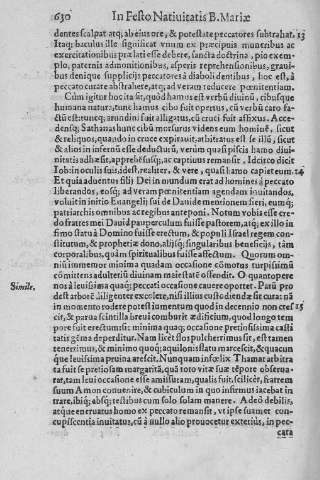 630 In Festo Natiuitatis B. Mariæ
dentes scalpat atq; ab eius ore, & potestate peccatores subtrahat. 13
Itaq; baculus ille significat vnum ex præcipuis muneribus ac
exercitationibus prælati esse debere, sancta doctrina, pio exem-
plo, paternis admonitionibus, asperis reprehensionibus, graui-
bus denique supplicijs peccatores à diaboli dentibus, hoc est, à
peccato curate abstrahere, atq; ad veram reducere pœnitentiam.
Cùm igitur hoc ita sit, quòd hamus est verbũ diuinũ, cibusque
humana natura, tunc hamus cibo fuit opertus, cũ verbũ caro fa-
ctũ est: tuncq; arundini fuit alligatus, cũ cruci fuit affixus. Acce-
densq; Sathanas hunc cibũ morsurus videns eum hominẽ, sicut
& reliquos, quando in cruce expirauit, arbitratus est se illũ, sicut
& alios in infernũ esse deducturũ, verùm quasi piscis hamo diui-
nitatis adhæsit, apprehẽsusq; ac captiuus remansit. Idcirco dicit
Iob: in oculis suis, id est, realiter, & vere, quasi hamo capiet eum. 14
Et quia aduentus filij Dei in mundum erat ad homines à peccato
liberandos, eosq; ad veram penitentiam agendam inuitandos,
voluit in initio Euangelij sui de Dauide mentionem fieri, eumq;
patriarchis omnibus ac regibus anteponi. Notum vobis esse cre-
do fratres mei Dauid pauperculum fuisse pastorem, atq; ex illo in-
fimo statu à Domino fuisse erectum, & populi Israel regem con-
stitutum, & prophetiæ dono, alijsq; singularibus beneficijs, tàm
corporalibus, quàm spiritualibus fuisse affectum. Quorum om-
nis immemor minima quadam occasione cõmotus turpissimũ
cõmittens adulteriũ diuinam maiestatẽ offendit. O quantopere
nos à leuissima quaq; peccati occasione cauere oportet. Parũ pro
Simile. dest arborẽ diligenter excolere, nisi illius custodiendæ sit cura: nã
in momento rodere potest iumentum quod in decennio non cref 15
cit, & parua scintilla breui comburit ædificium, quod longo tem
pore fuit erectum: sic minima quaq; occasione pretiosissima casti
tatis gẽma deperditur. Nam licet flos pulcherrimus sit, est tamen
tenerrimus, & minimo quoq; aquilonis flatu marcescit, & quacun
que leuissima pruina arescit. Nunquam infœlix Thamar arbitra
ta fuit se pretiosam margaritã, quã toto vitæ suæ tẽpore obserua-
rat, tam leui occasione esse amissuram, qualis fuit, scilicẽt, fratrem
suum Amon conuenire, & cubiculum in quo infirmus iacebat in
trare, ibiq; absq; testibus cum solo solam manere. Adeò debilis,
atque eneruatus homo ex peccato remansit, vt ipse suamet con-
cupiscentia inuitatus, cũ à nullo alio prouocetur exterius, in pec-
cata